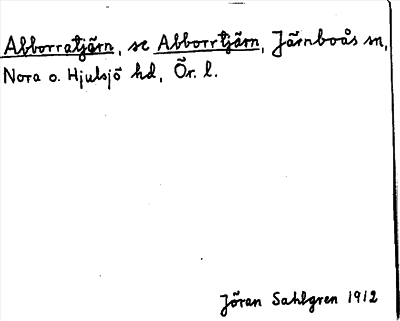 Abborratjärn, se Abborrtjärn, Järnboås sn,
Nora o. Hjulsjö hd, Ör. l.
Jöran Sahlgren 1912